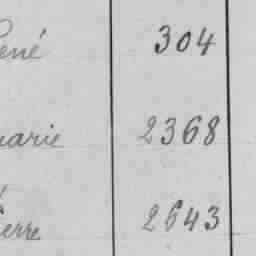 René 304
marie 2368
Pierre 2643